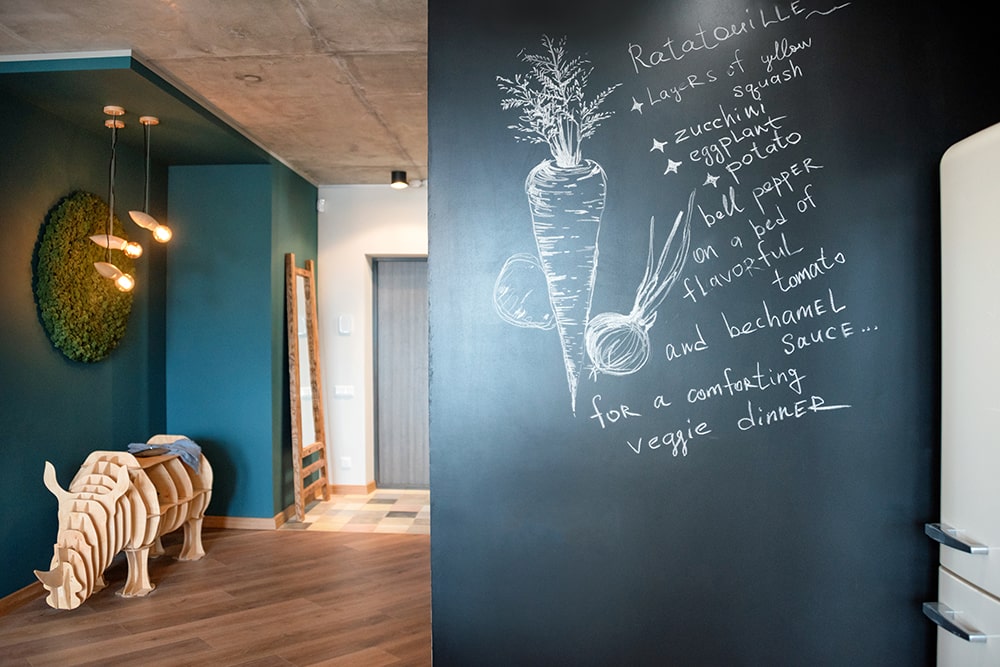 RatatouiLLE
LayeRs of yellow
squash
zucchini
eggplant
potato
bell pepper
on a bed of
flavorful
tomato
and bechamEL
SaucE...
foR a comfoRting
veggie dinnER